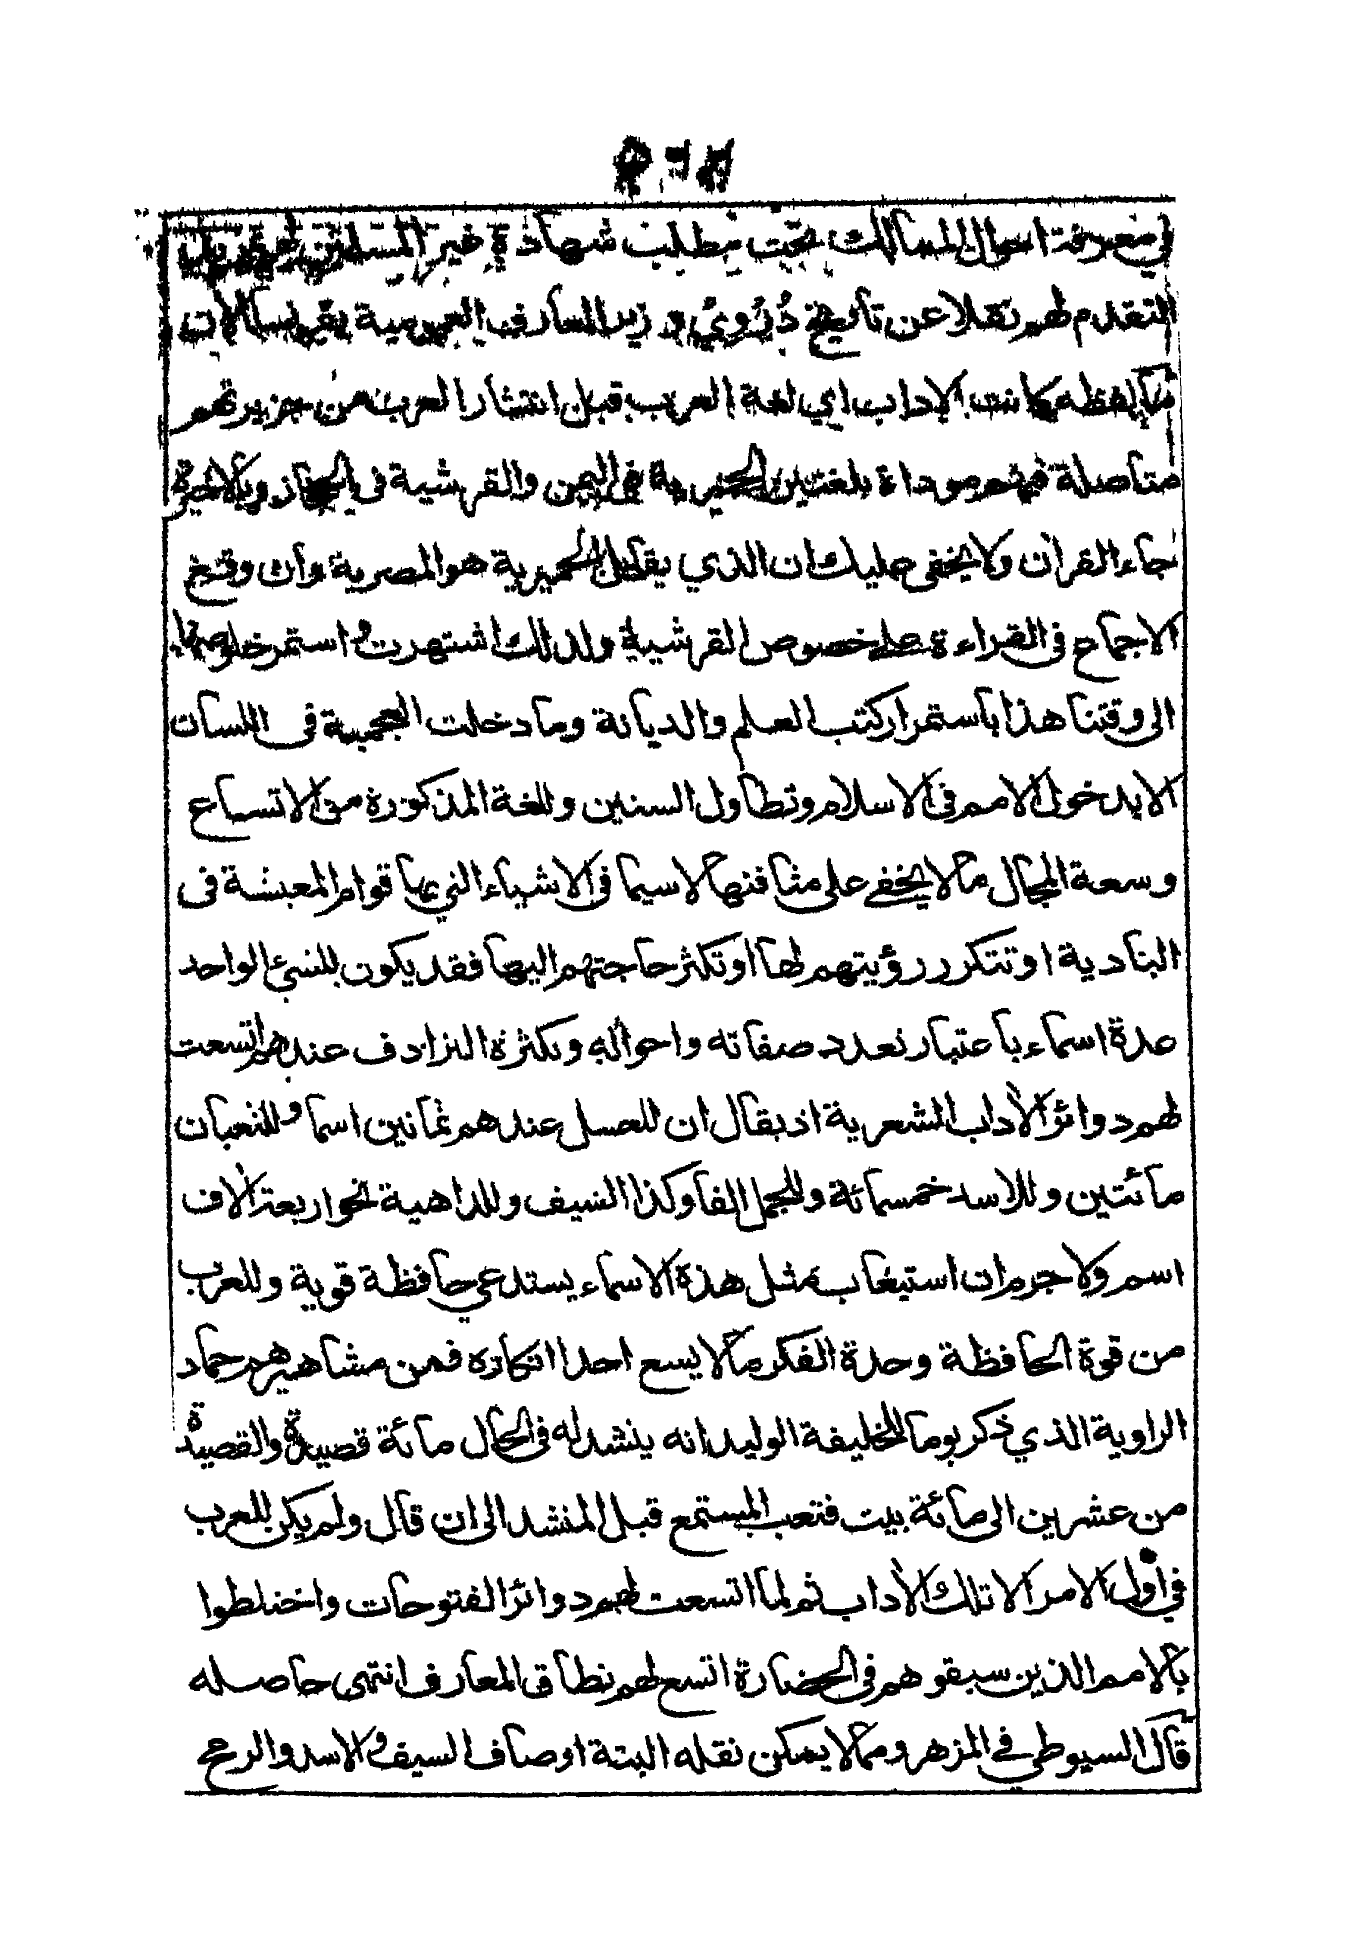 في معرفة احوال الممالك تحت مطلب شهادة غير المسلمين
التقدم لهم نقلا عن تاريخ دُرُوِيْ وزير المعارف العمومية بفرنسا الان
ما لفظه كانت الاداب اي لغة العرب قبل انتشار العرب من جزيرتهم
متاصلة فيهم موداة بلغتين الحميرية في اليمن والقرشية في الحجاز وبالاخيرة
جاء القرآن ولا يخفى عليك ان الذي يقابل الحميرية هو المضرية وان وقع
الاجماع في القراءة على خصوص القرشية ولذلك اشتهرت واستمر خلوصها
الى وقتنا هذا باستمرار كتب العلم والديانة وما دخلت العجمية في اللسان
الا بدخول الامم في الاسلام وتطاول السنين وللغة المذكورة من الاتساع
وسعة المجال مالا يخفى على مثافنها لاسيما في الاشياء التي بها قوام المعيشة في
البادية او تتكرر رؤيتهم لها او تكثر حاجتهم اليها فقد يكون للشيء الواحد
عدة اسماء باعتبار تعدد صفاته واحواله وبكثرة الترادف عندهم اتسعت
لهم دوائر الاداب الشعرية اذ يقال ان للعسل عندهم ثمانين اسما وللثعبان
مائتين وللاسد خمسمائة وللجمل الفا وكذا السيف وللداهية نحو اربعة الاف
اسم ولا جرم ان استيعاب مثل هذه الاسماء يستدعي حافظة قوية وللعرب
من قوة الحافظة وحدة الفكر مالا يسع احدا انكاره فمن مشاهيرهم حماد
الراوية الذي ذكر يوما للخليفة الوليد انه ينشد له في الحال مائة قصيدة والقصيدة
من عشرين الى مائة بيت فتعب المستمع قبل المنشد الى ان قال ولم يكن للعرب
في اول الامر الا تلك الاداب ثم لما اتسعت لهم دوائر الفتوحات واختلطوا
بالامم الذين سبقوهم في الحضارة اتسع لهم نطاق المعارف انتهى حاصله
قال السيوطي في المزهر ومما لا يمكن نقله البتة اوصاف السيف والاسد والرمح